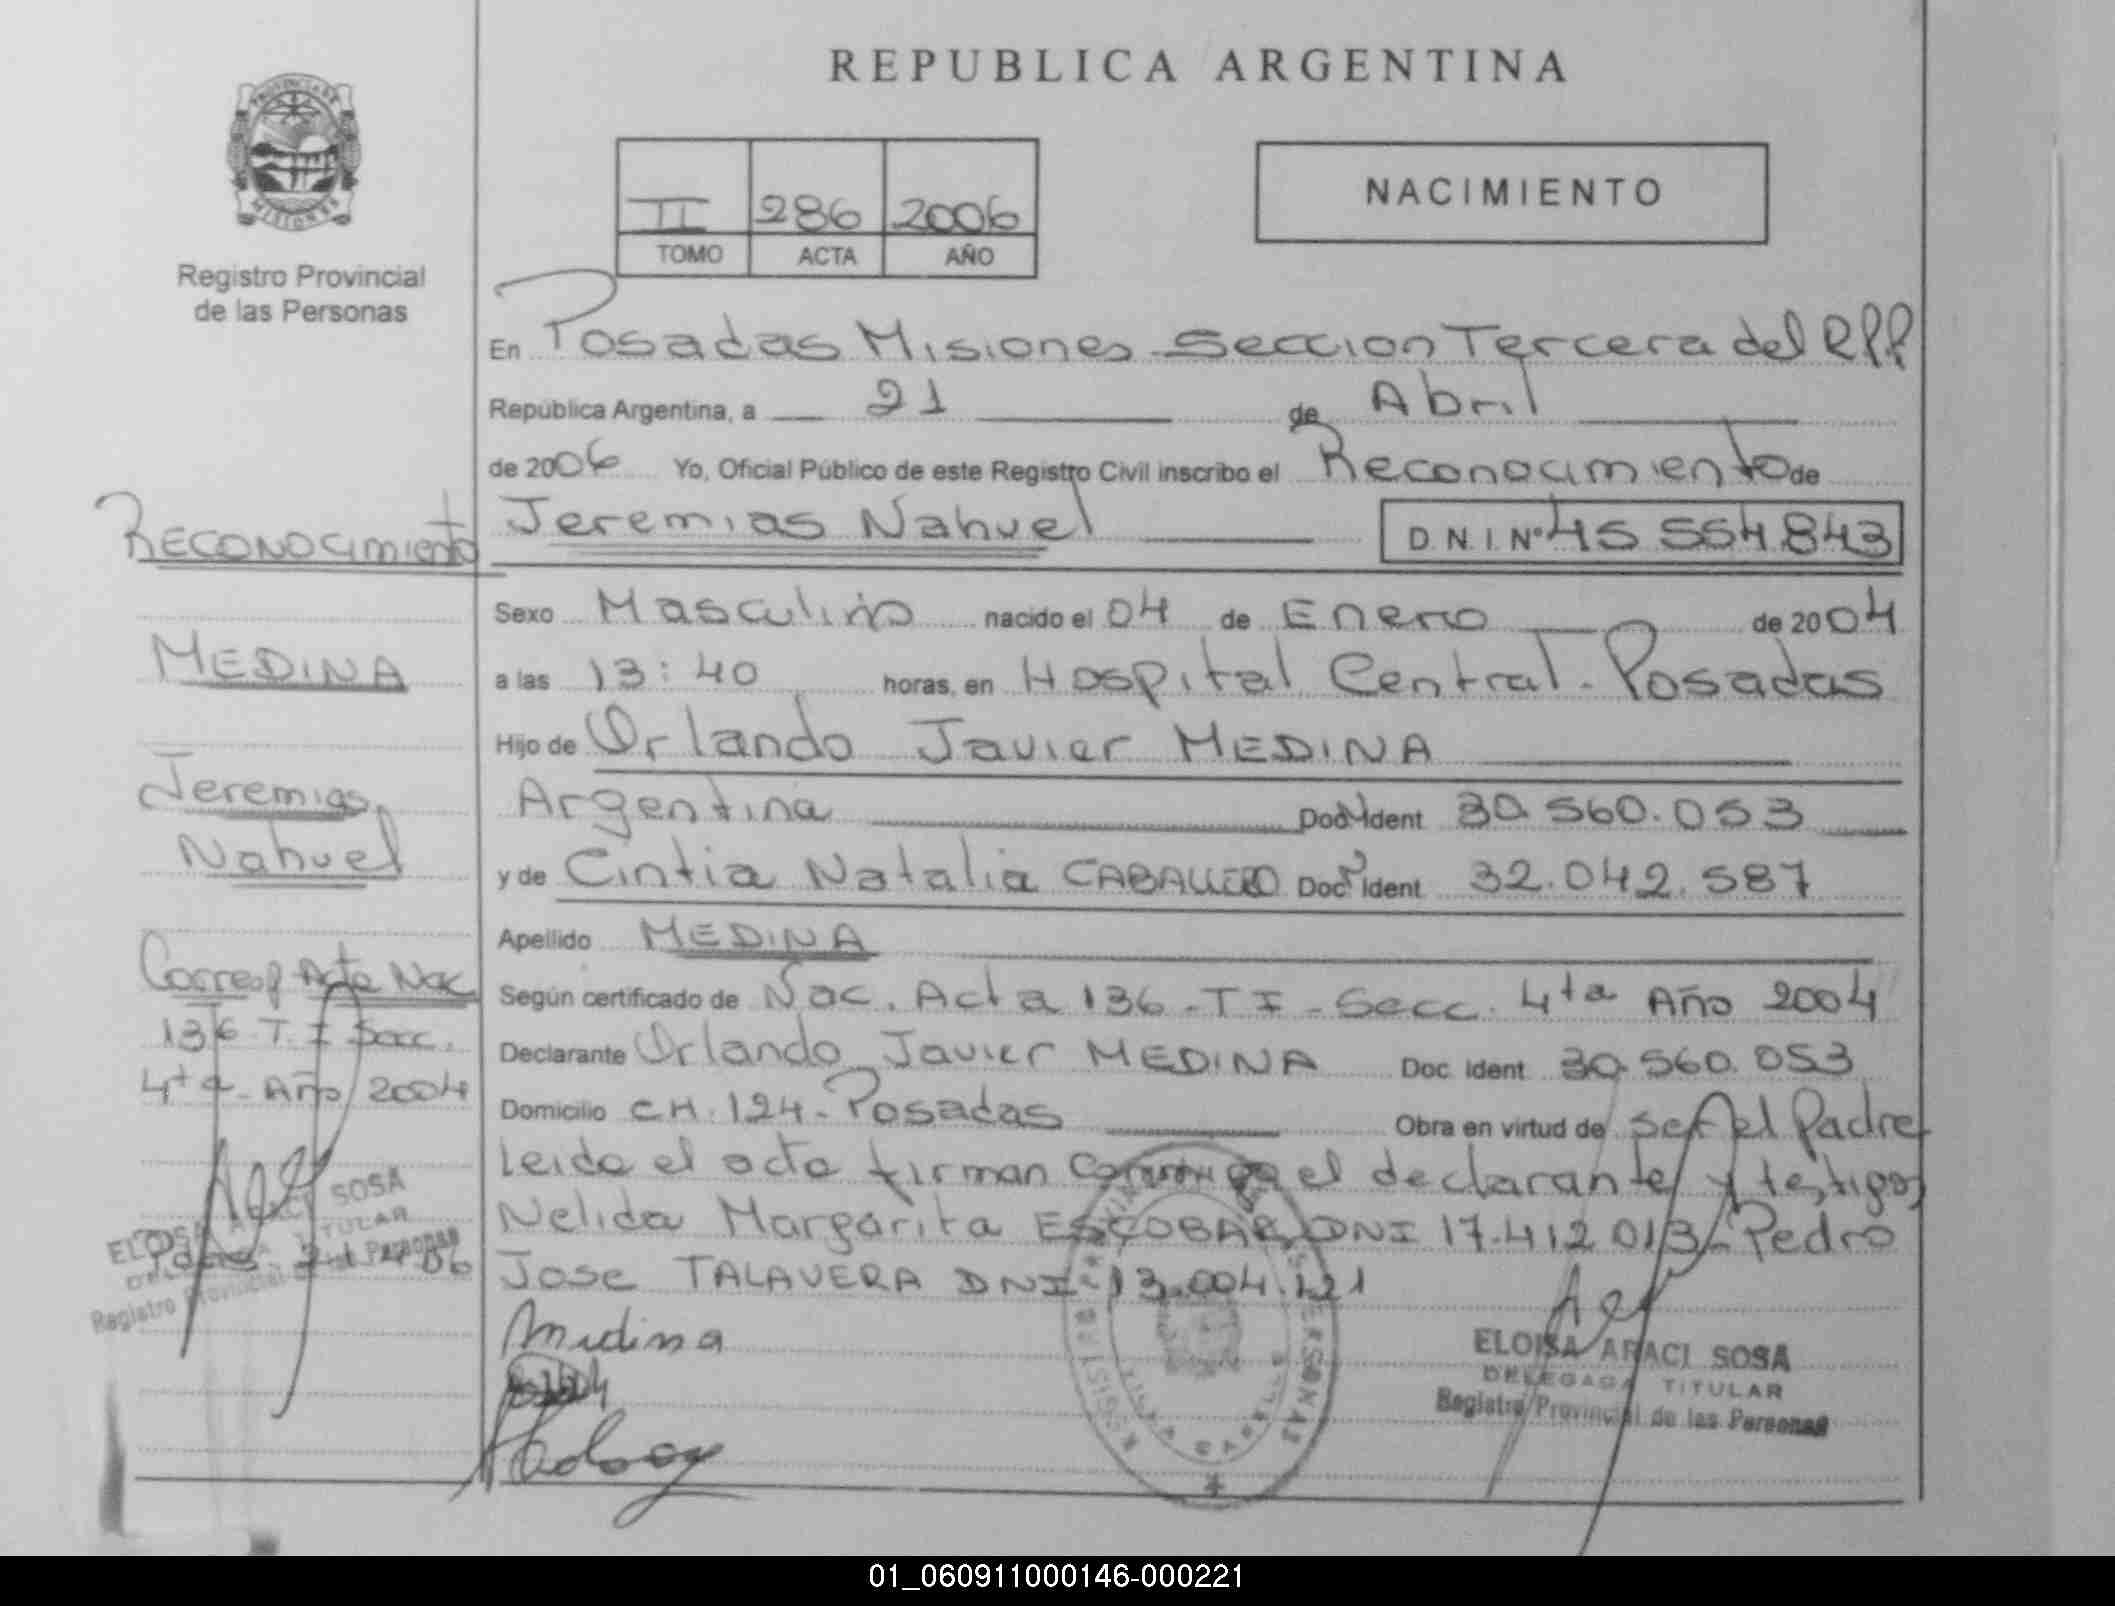 REPUBLICA ARGENTINA
PROVINCIA DE
MISIONES
Registro Provincial
de las Personas
II 286 2006
TOMO ACTA AÑO
NACIMIENTO
En Posadas Misiones Seccion Tercera del RPP
República Argentina, a 21 de Abril
de 2006 Yo, Oficial Público de este Registro Civil inscribo el Reconocimiento de
Jeremias Nahuel D.N.I. Nº 45 554 843
Sexo Masculino nacido el 04 de Enero de 2004
a las 13:40 horas, en Hospital Central - Posadas
Hijo de Orlando Javier MEDINA
Argentina Doc Ident 30.560.053
y de Cintia Natalia CABALLERO Doc Ident 32.042.587
Apellido MEDINA
Según certificado de Nac. Acta 136 - T I - Secc. 4ta Año 2004
Declarante Orlando Javier MEDINA Doc. Ident 30.560.053
Domicilio CH. 124 - Posadas Obra en virtud de ser el Padre
Leida el acta firman conmigo el declarante y testigos
Nelida Margarita ESCOBAR DNI 17.412.013 - Pedro
Jose TALAVERA DNI 13.004.121
Medina
ELOISA ARACI SOSA
DELEGADA TITULAR
Registro Provincial de las Personas
RECONOCIMIENTO
MEDINA
Jeremias
Nahuel
Corresp Acta Nac
136 T. I Secc.
4ta - Año 2004
ELOISA ARACI SOSA
DELEGADA TITULAR
Registro Provincial de las Personas
01_060911000146-000221